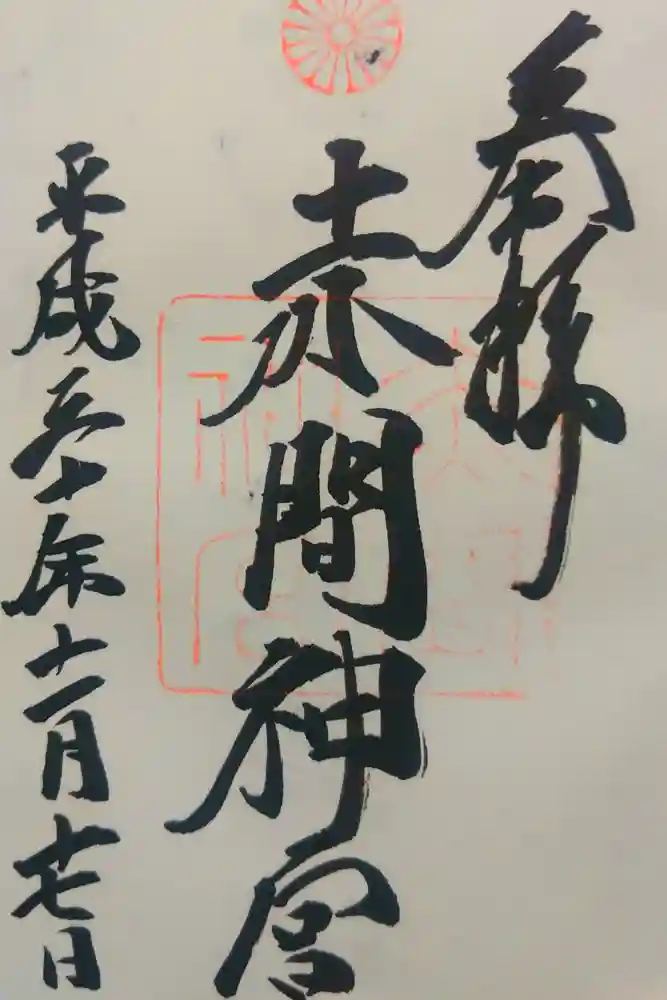 奉拝
赤間神宮
平成三十年十一月廿七日